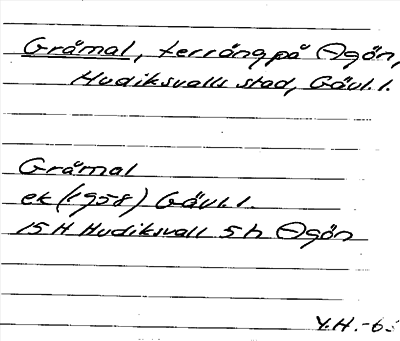 Gråmal, terräng på Agön,
Hudiksvalls stad, Gävl. l.
Gråmal
ek (1958) Gävl. l.
15H Hudiksvall 5h Agön
Y.H.-65